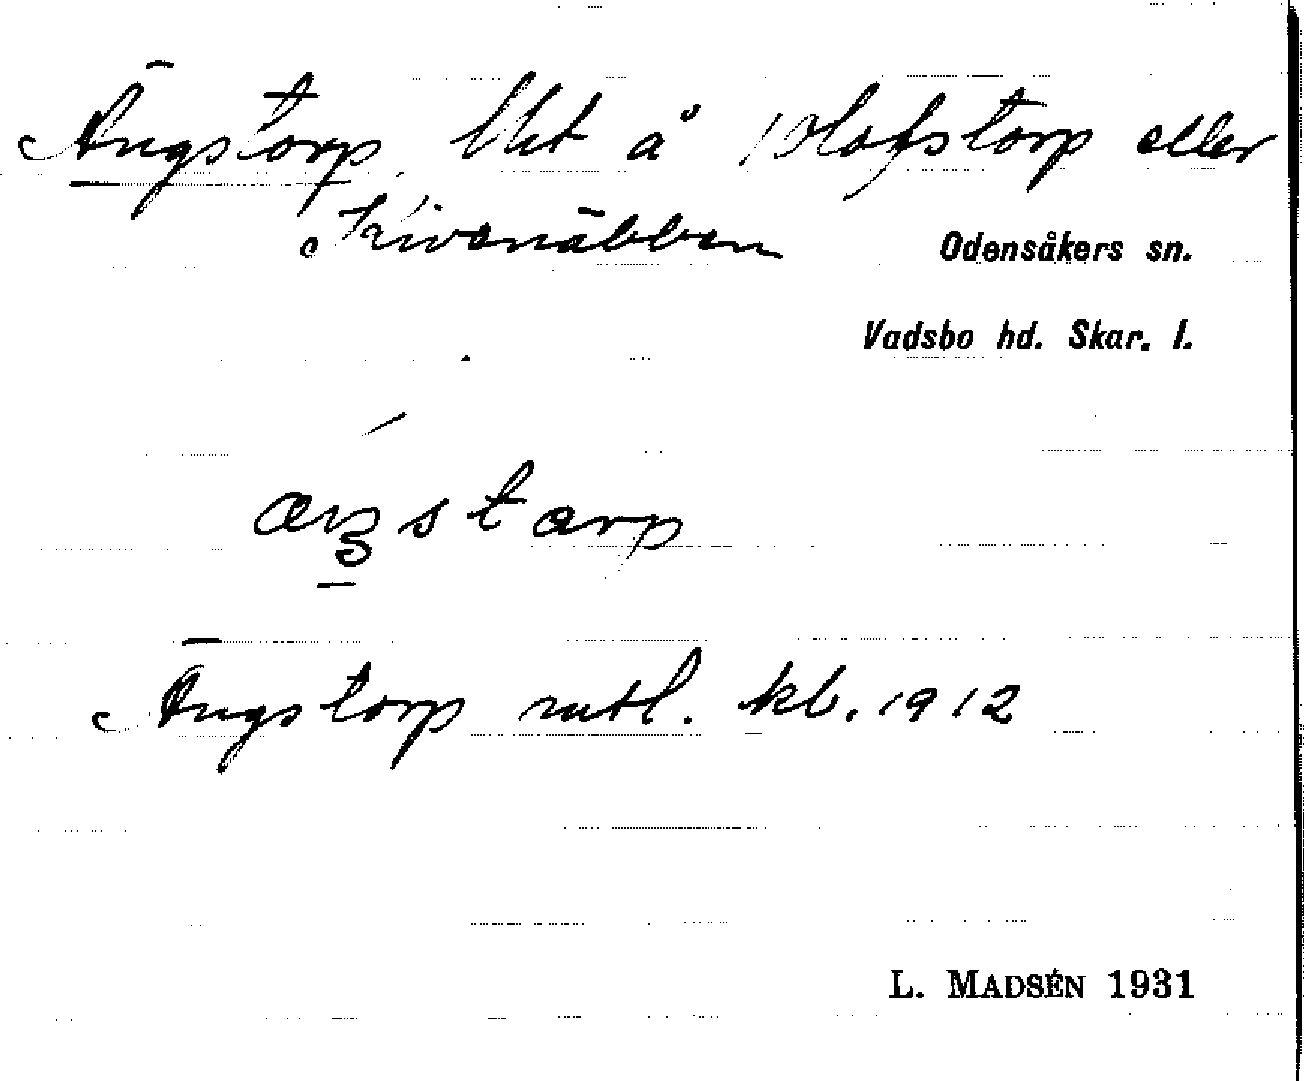 Ängstorp, lht å 1 Olofstorp eller
Krivanäbben
Odensåkers sn.
Vadsbo hd. Skar. l.
Ängstorp mtl. kb. 1912
L. MADSÉN 1931